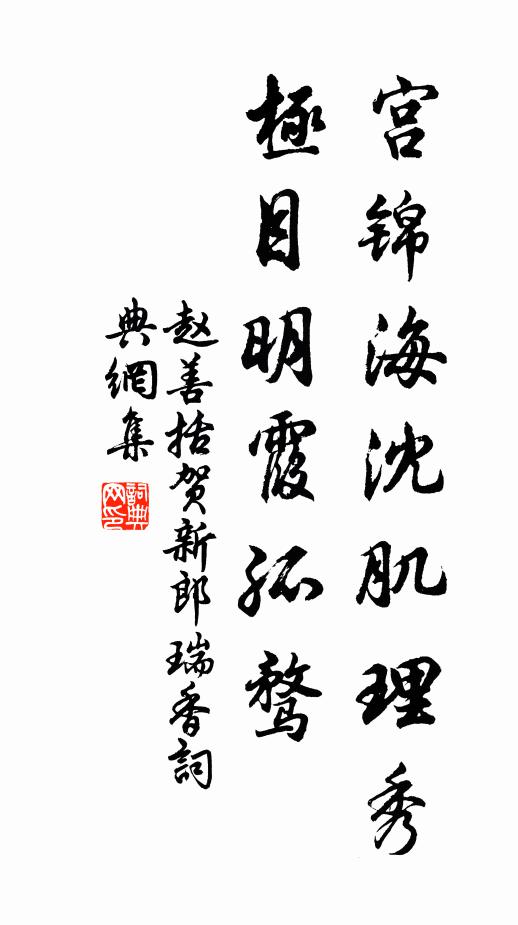 宫锦海沈肌理秀
極目明霞孤鹜
赵善括贺新郎瑞香詞
典網集
詞典网印